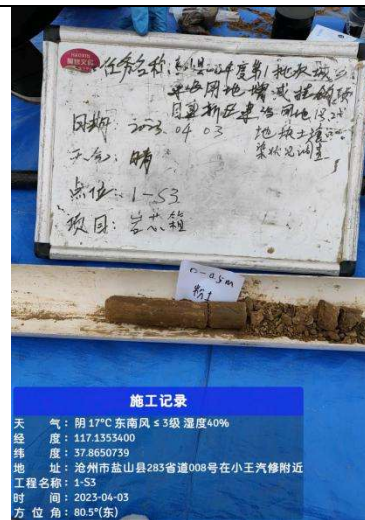 任务名称:盐县2024年度第1批次城乡
建设用地增减挂钩项
目建新区建设用地
地块土壤污
染状况调查
日期:2023.04.03
天气:晴
点位:1-S3
项目:岩芯箱
0-0.5m
粉土
施工记录
天 气:阴 17℃ 东南风 ≤ 3级 湿度40%
经 度:117.1353400
纬 度:37.8650739
地 址:沧州市盐山县283省道008号在小王汽修附近
工程名称:1-S3
时 间:2023-04-03
方 位 角:80.5°(东)